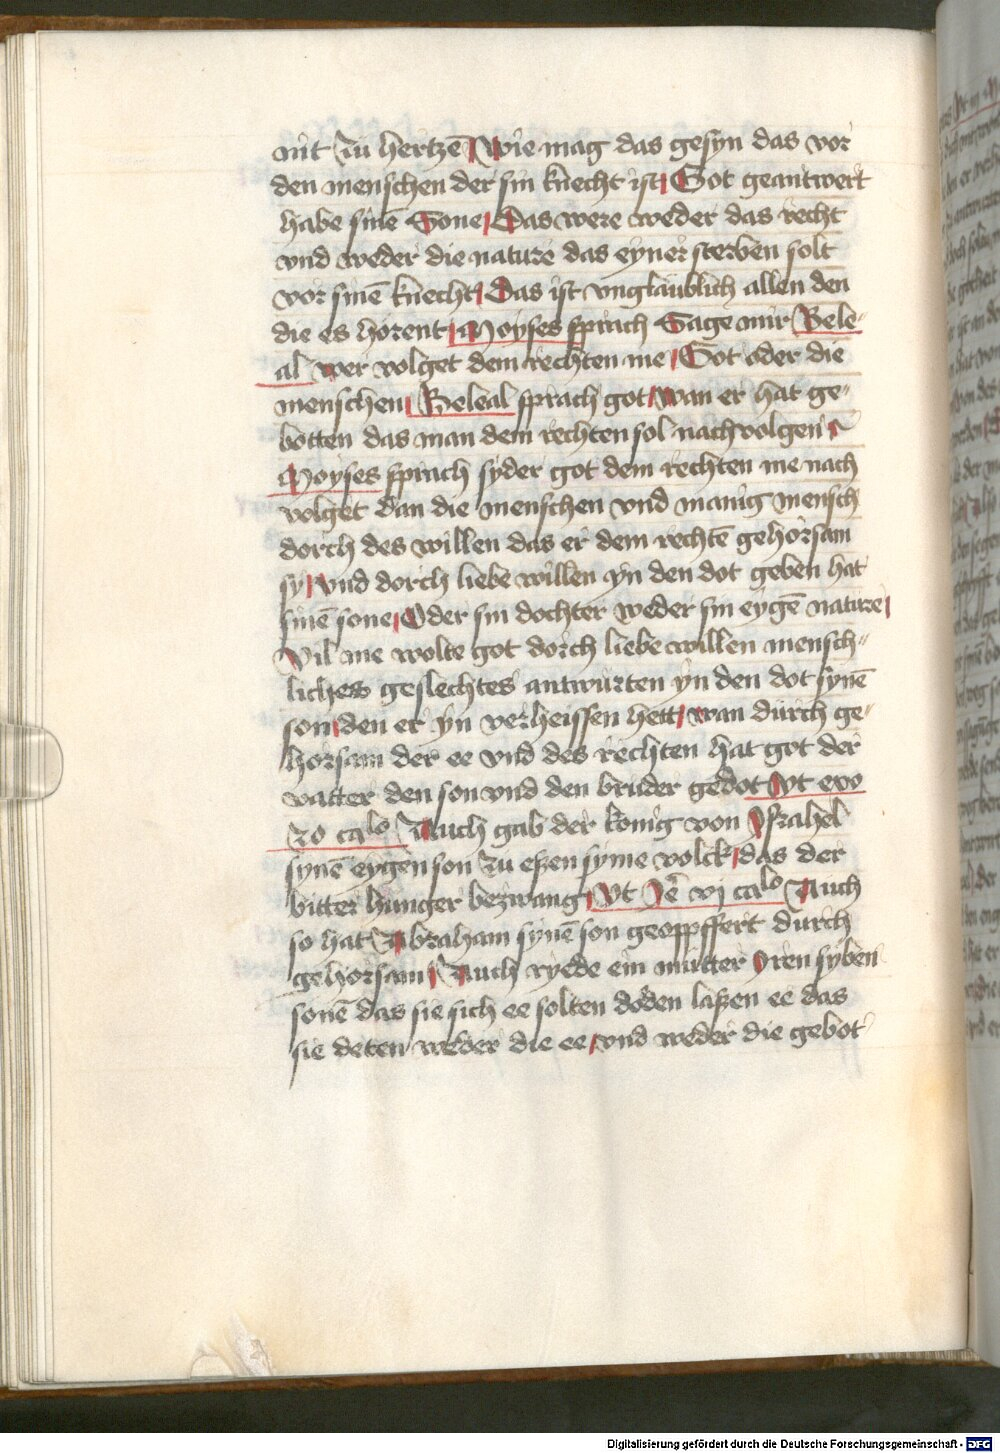 nit zu hertzē Wie mag das gesyn das vor
den menschen der sin knecht ist Got geantwert
habe sinē Sone Das were weder das recht
vnd weder die nature das eyner sterben solt
vor sinē knecht Das ist vnglaublich allen den
die es horent Moyses sprach Sage mir Bele⸗
al wer volget dem rechten me Got oder die
menschen Beleal sprach got wan er hat ge⸗
botten das man dem rechten sol nachvolgen
Moyses sprach syder got dem rechten me nach
volget dan die menschen vnd manig mensch
dorch des willen das er dem rechtē gehorsam
sy vnd dorch liebe willen yn den dot geben hat
sinē sone Oder sin dochter weder sin eygē nature
Vil me wolte got dorch liebe willen mensch⸗
liches geslechtes antwurten yn den dot synē
son den er yn verheissen hett wan durch ge⸗
horsam der ee vnd des rechten hat got der
vatter den son vnd den bruder gedot vt exo
20 calo Auch gab der konig von Israhel
synē eygen son zu eßen syme volck das der
bitter hunger bezwang Vt Jē vj calo Auch
so hat Abraham synē son geoppffert durch
gehorsam Auch ryede ein mutter Iren syben
sonē das sie sich ee solten doden laßen ee das
sie deten weder die ee vnd weder die gebot
Digitalisierung gefördert durch die Deutsche Forschungsgemeinschaft - DFG